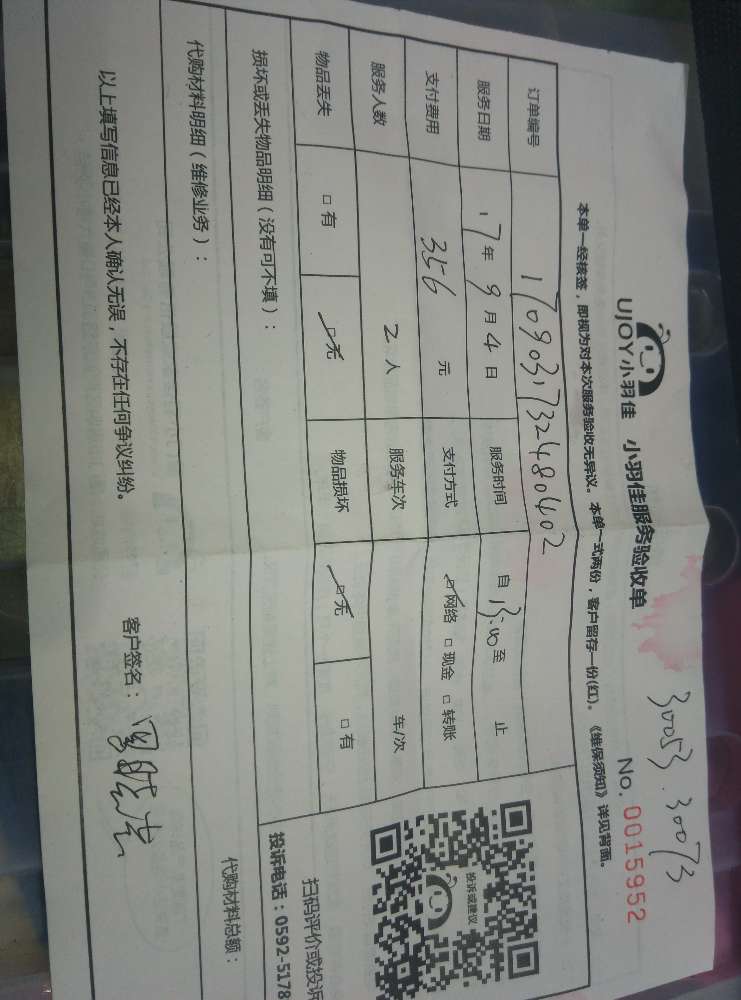 30053.30073
UJOY小羽佳 小羽佳服务验收单 No. 0015952
本单一经核签，即视为对本次服务验收无异议。本单一式两份，客户留存一份(红)。《维保须知》详见背面。
订单编号 170903173248040402
服务日期 17年9月4日 服务时间 自 至 止
支付费用 356 元 支付方式 ☑网络 □现金 □转账
服务人数 2人 服务车次 车/次
物品丢失 □有 ☑无 物品损坏 ☑无 □有
损坏或丢失物品明细（没有可不填）：
代购材料明细（维修业务）： 代购材料总额：
投诉或建议
扫码评价或投诉
投诉电话：0592-5178
以上填写信息已经本人确认无误，不存在任何争议纠纷。 客户签名：